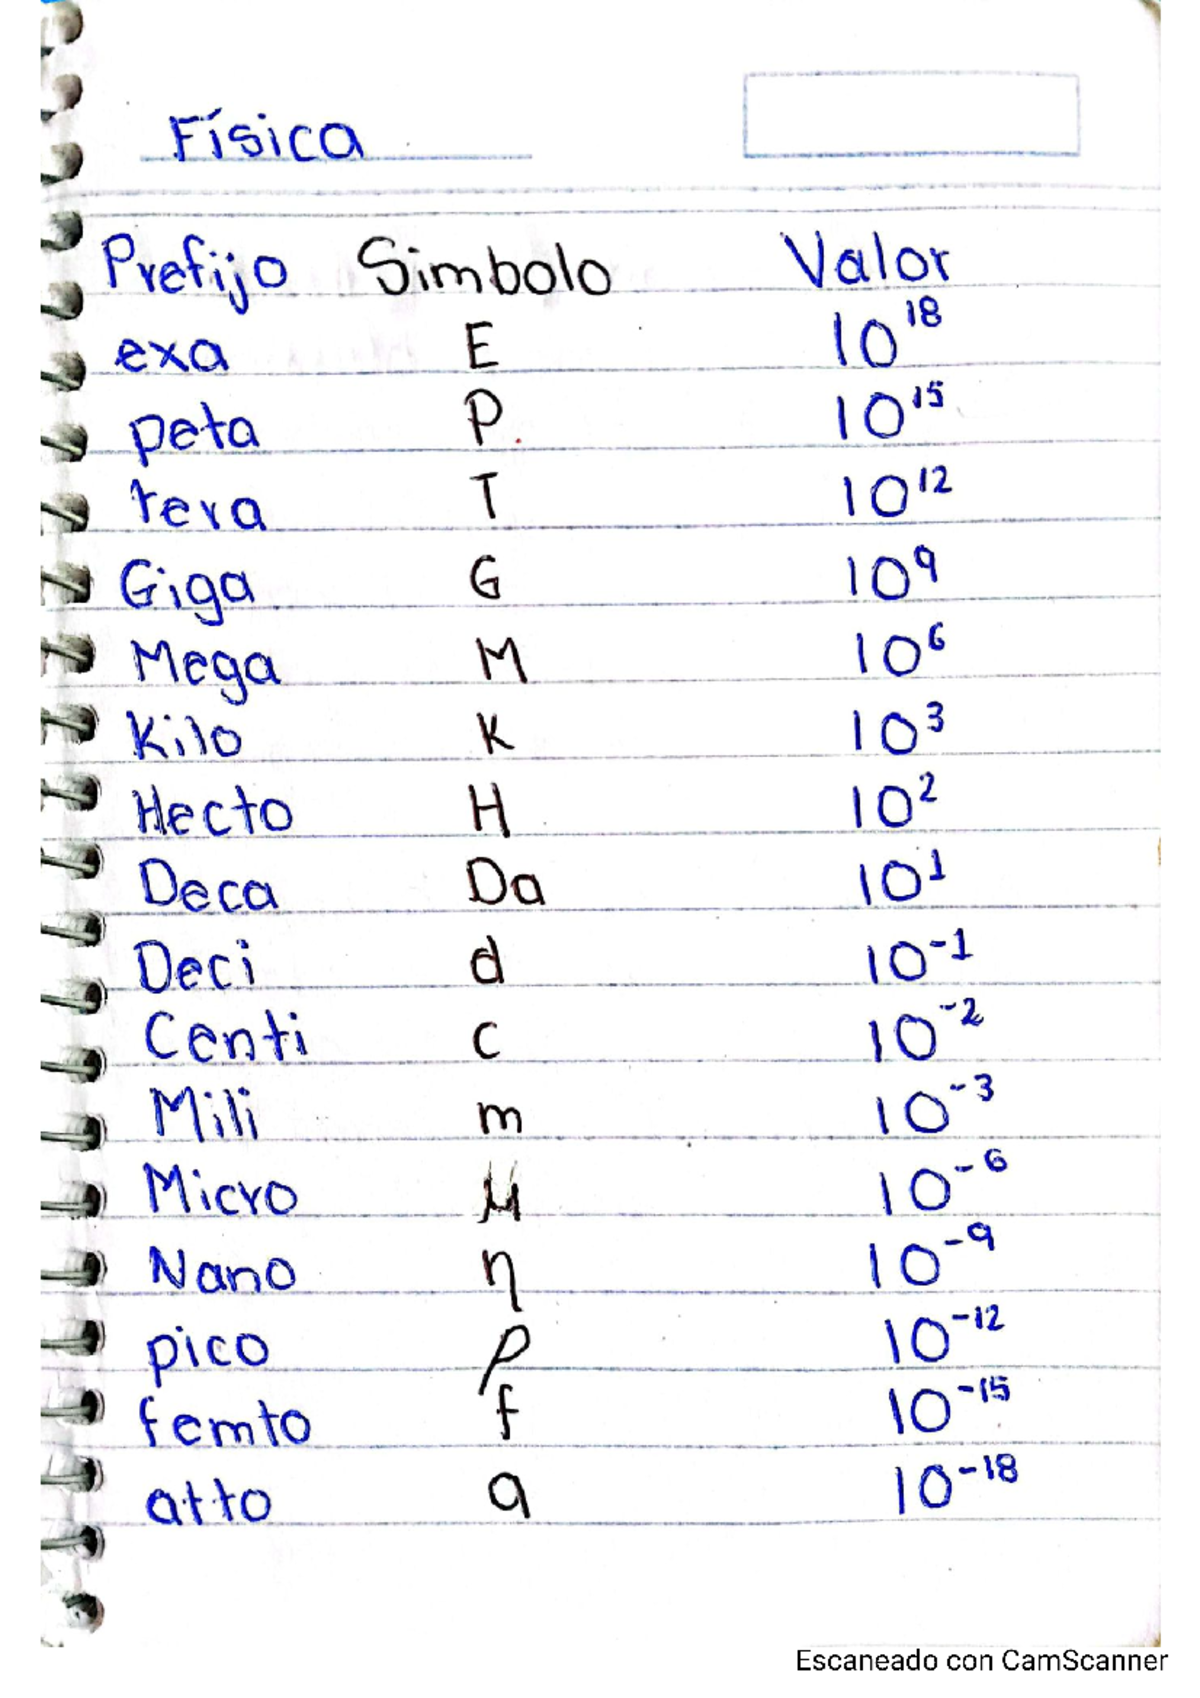 Física
Prefijo Simbolo Valor
exa E 10^18
peta P. 10^15
tera T 10^12
Giga G 10^9
Mega M 10^6
Kilo K 10^3
Hecto H 10^2
Deca Da 10^1
Deci d 10^-1
Centi c 10^-2
Mili m 10^-3
Micro μ 10^-6
Nano η 10^-9
pico p 10^-12
femto f 10^-15
atto a 10^-18
Escaneado con CamScanner